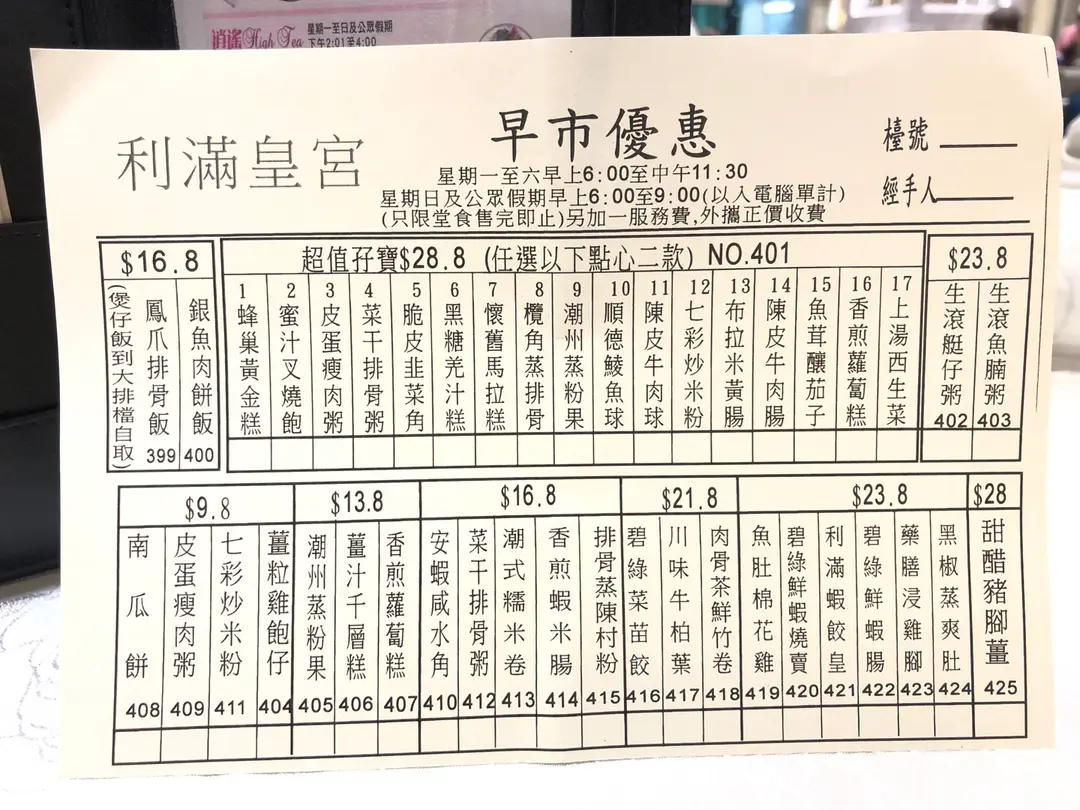 逍遙High Tea 星期一至日及公眾假期
下午2:01至4:00
利滿皇宮
早市優惠
星期一至六早上6:00至中午11:30
星期日及公眾假期早上6:00至9:00(以入電腦單計)
(只限堂食售完即止)另加一服務費,外攜正價收費
檯號
經手人
$16.8
(煲仔飯到大排檔自取)
鳳爪排骨飯 399
銀魚肉餅飯 400
超值孖寶$28.8 (任選以下點心二款) NO.401
1 蜂巢黃金糕
2 蜜汁叉燒飽
3 皮蛋瘦肉粥
4 菜干排骨粥
5 脆皮韭菜角
6 黑糖羌汁糕
7 懷舊馬拉糕
8 欖角蒸排骨
9 潮州蒸粉果
10 順德鯪魚球
11 陳皮牛肉球
12 七彩炒米粉
13 布拉米黃腸
14 陳皮牛肉腸
15 魚茸釀茄子
16 香煎蘿蔔糕
17 上湯西生菜
$23.8
生滾艇仔粥 402
生滾魚腩粥 403
$9.8
南瓜餅 408
皮蛋瘦肉粥 409
七彩炒米粉 411
薑粒雞飽仔 404
$13.8
潮州蒸粉果 405
薑汁千層糕 406
香煎蘿蔔糕 407
$16.8
安蝦咸水角 410
菜干排骨粥 412
潮式糯米卷 413
香煎蝦米腸 414
排骨蒸陳村粉 415
$21.8
碧綠菜苗餃 416
川味牛柏葉 417
肉骨茶鮮竹卷 418
$23.8
魚肚棉花雞 419
碧綠鮮蝦燒賣 420
利滿蝦餃皇 421
碧綠鮮蝦腸 422
藥膳浸雞腳 423
黑椒蒸爽肚 424
$28
甜醋豬腳薑 425